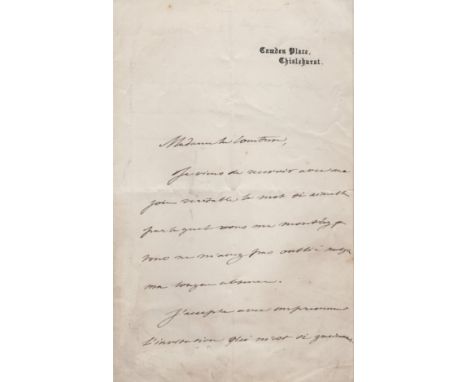 Camden Place,
Chislehurst.
Madame la Comtesse,
Je viens de recevoir avec une
joie véritable le mot si aimable
par lequel vous me montrez que
vous ne m'avez pas oublié malgré
ma longue absence.
J'accepte avec empressement
l'invitation qui m'est si